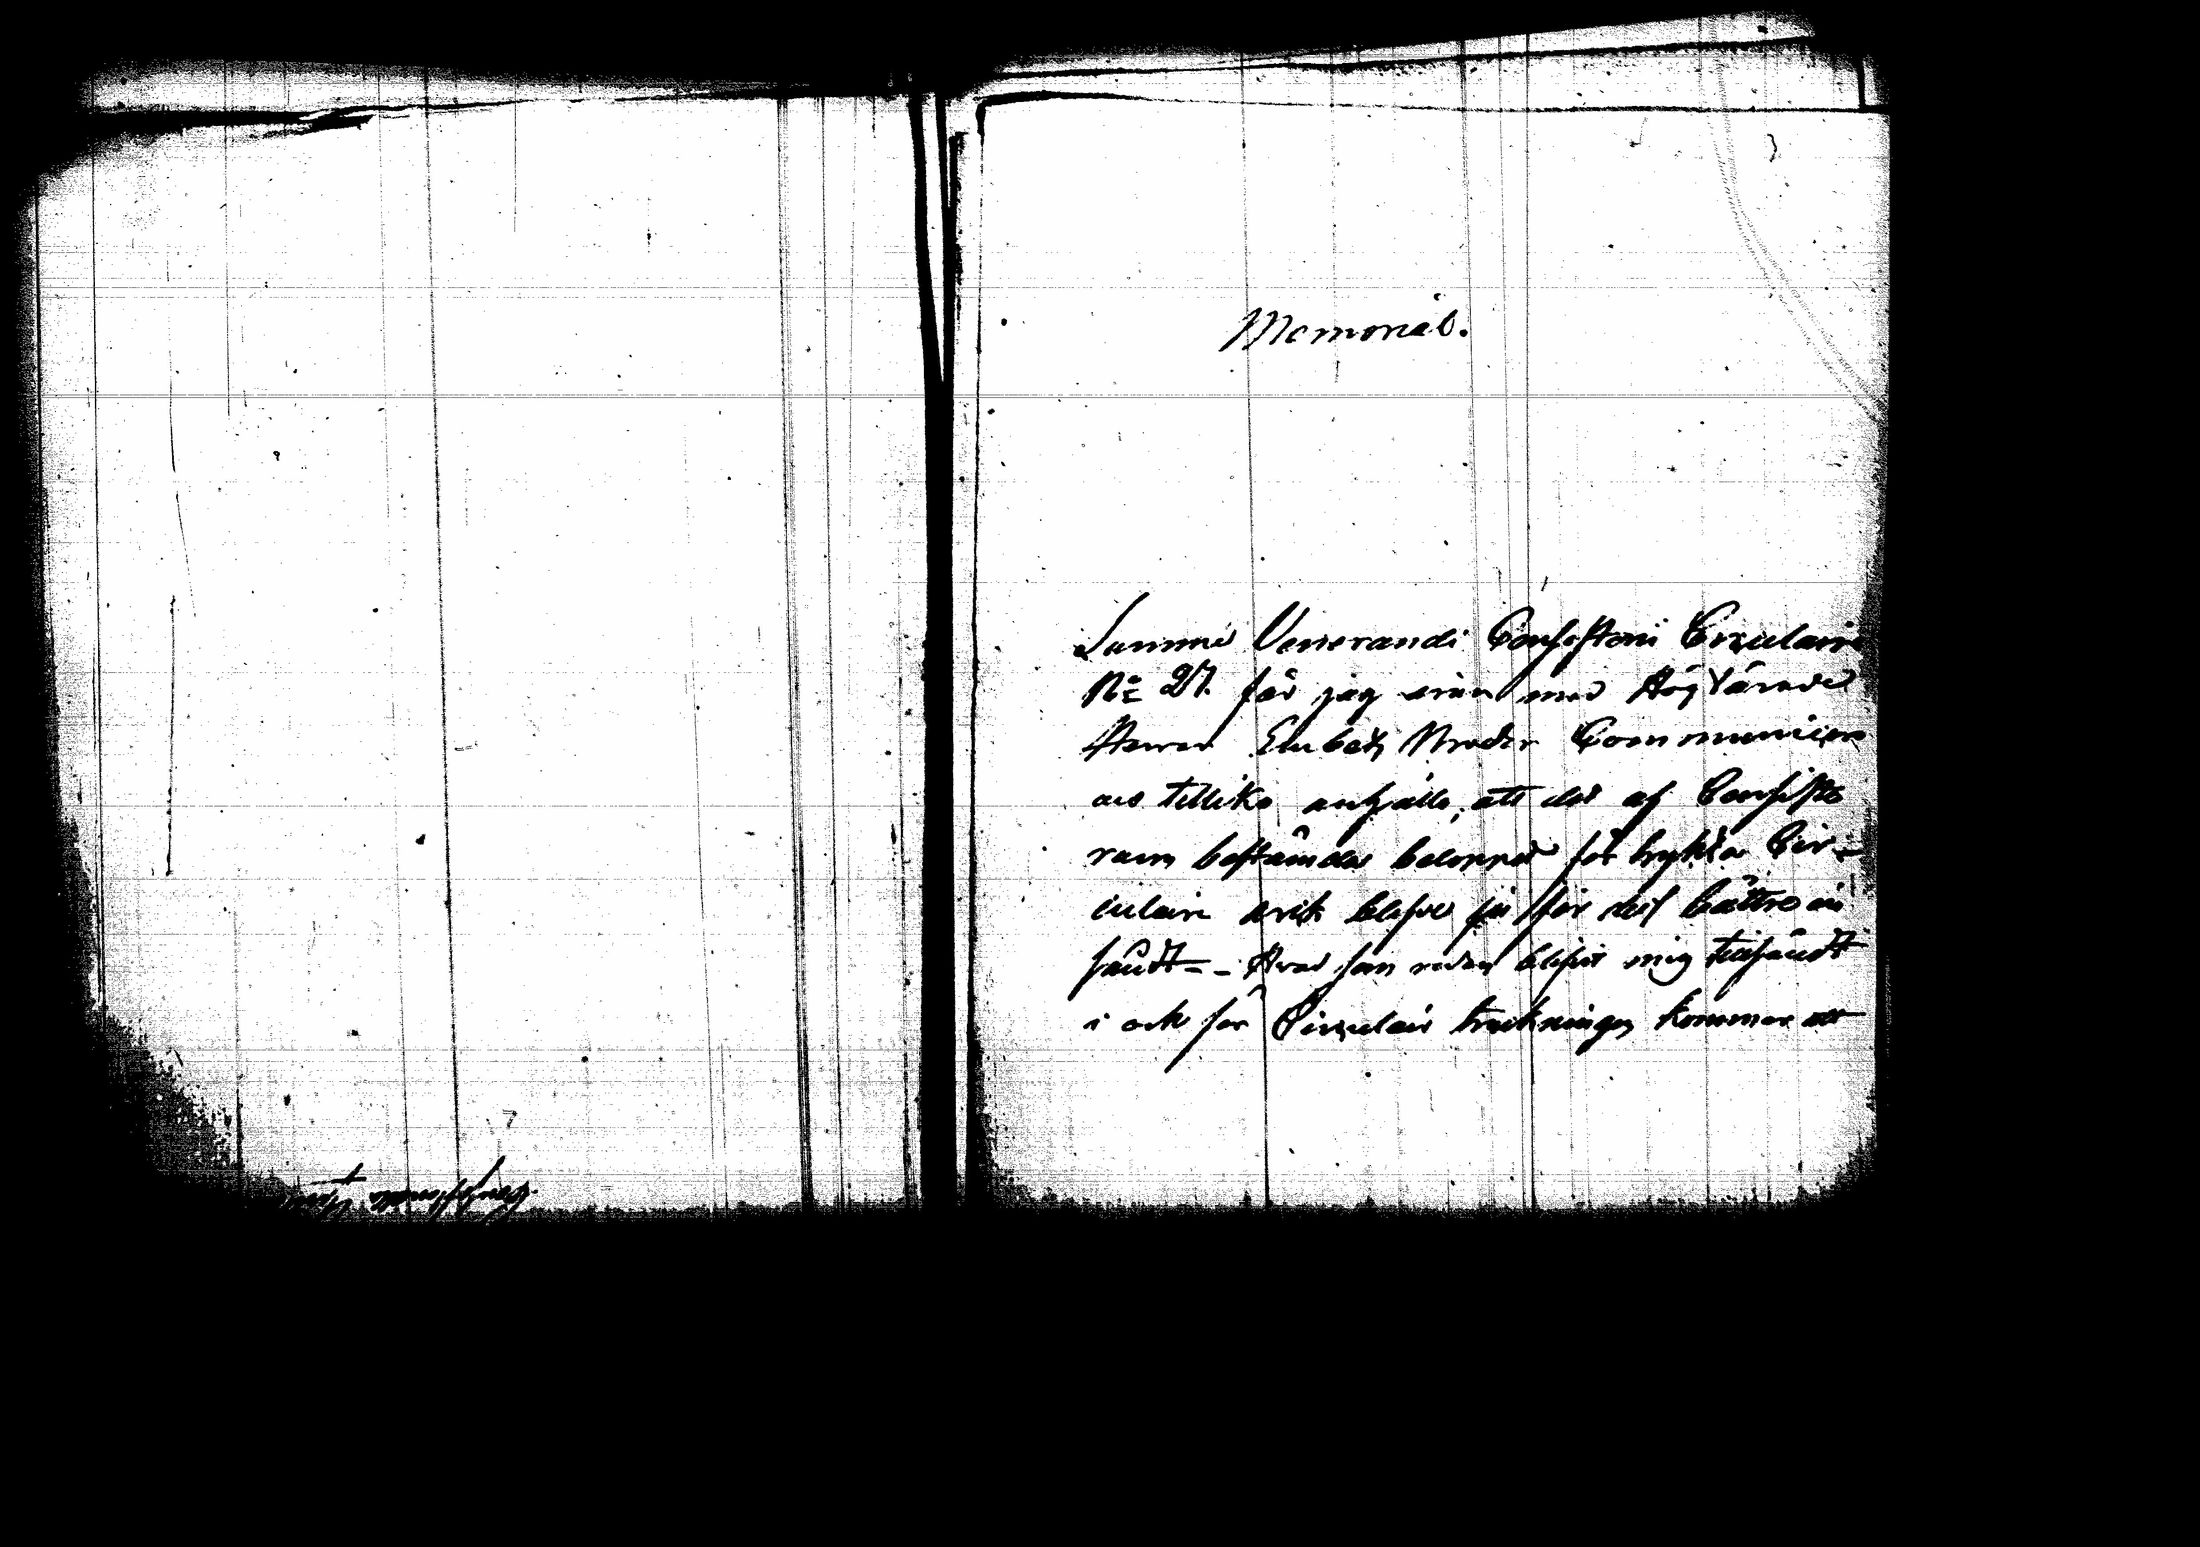 Memorial.
Summe Venerandi Consistorii Circulaire
No 27. får jag med Höglärde
Herrar Embets Bröder Communicera
och tillika anhålla, att det af Consisto
rium bestämda beloppet för tryckta Cir-
culair ark blefve ju förr dess bättre in
sändt - - Hvad som redan blifvit mig tillsändt
i och för Circulair tryckningen kommer att